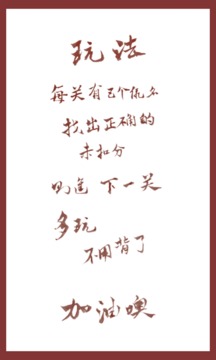 玩法
每关有三个组名
找出正确的
未扣分
则进 下一关
多玩
不用背了
加油噢